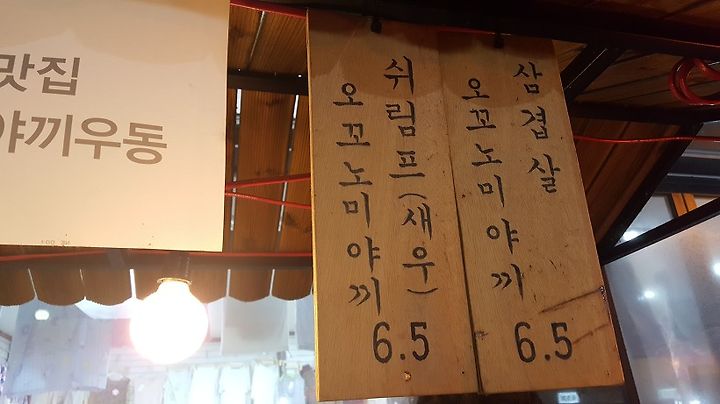 맛집
야끼우동
쉬림프(새우)
오꼬노미야끼
6.5
삼겹살
오꼬노미야끼
6.5